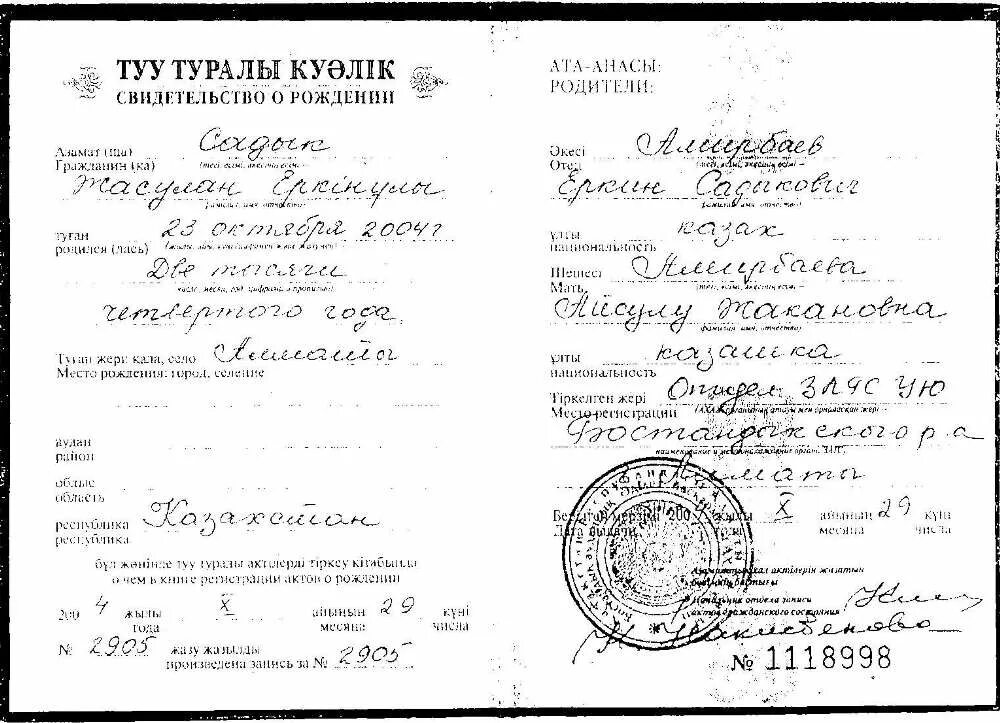 ТУУ ТУРАЛЫ КУӘЛІК
СВИДЕТЕЛЬСТВО О РОЖДЕНИИ
Азамат (ша) Садык
Гражданин (ка) (тегі, есімі, әкесінің есімі –
Жасулан Еркінулы
фамилия, имя, отчество)
туған 23 октября 2004 г
родился (лась)
Две тысячи
число, месяц, год цифрами и прописью)
четвертого года
Туған жері: қала, село Алматы
Место рождения: город, селение
аудан
район
облыс
область
республика Казахстан
республика
бұл жөнінде туу туралы актілерді тіркеу кітабында
о чем в книге регистрации актов о рождении
2004 жылы X айының 29 күні
года месяца числа
№ 2905 жазу жазылды
произведена запись за № 2905
АТА-АНАСЫ:
РОДИТЕЛИ:
Әкесі Амирбаев
Отец (тегі, есімі, әкесінің есімі –
Еркин Садыкович
фамилия, имя, отчество)
ұлты казах
национальность
Шешесі Амирбаева
Мать (тегі, есімі, әкесінің есімі –
Айсулу Жакановна
фамилия, имя, отчество)
ұлты казашка
национальность
Тіркелген жері Отдел ЗАГС УЮ
Место регистрации (АХАЖ органының атауы мен орналасқан жері –
Бостандыкского р а
наименование и местонахождение органа ЗАГС)
Алматы
Берілген мерзімі 200 жылы X айының 29 күні
Дата выдачи года месяца числа
Азаматтық хал актілерін жазатын
бөлімнің бастығы
Начальник отдела записи
актов гражданского состояния
№ 1118998